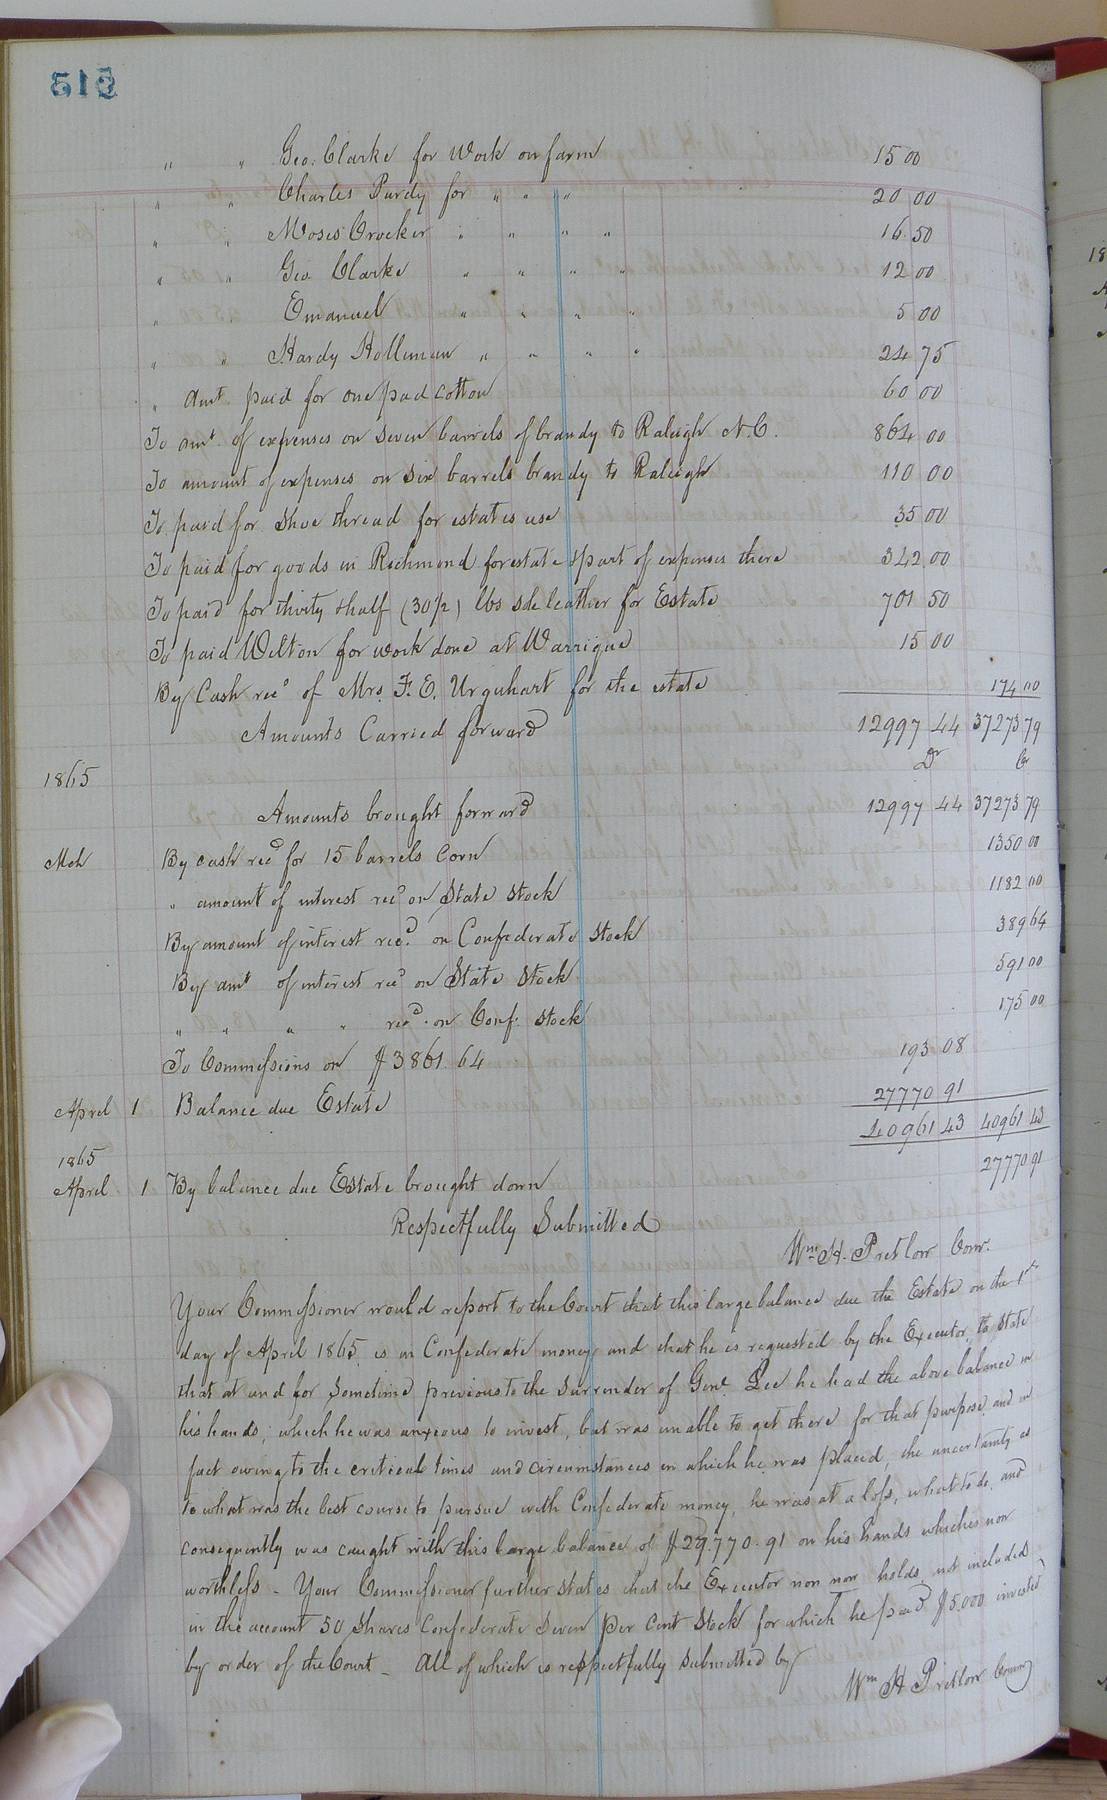 516
" " Geo. Clarke for Work on farm 15 00
" " Charles Purdy for " " " 20 00
" " Moses Crocker " " " " 16 50
" " Geo Clarke " " " " 12 00
" " Emanuel " " " " 5 00
" " Hardy Holleman " " " " 24 75
" Amt paid for one pad cotton 60 00
To amt of expenses on seven barrels of brandy to Raleigh N.C. 864 00
To amount of expenses on six barrels brandy to Raleigh 110 00
To paid for Shoe thread for estates use 35 00
To paid for goods in Richmond for estate & part of expenses there 342 00
To paid for thirty & half (30½) lbs sole leather for Estate 701 50
To paid Wilton for work done at Warrique 15 00
By Cash recd of Mrs. F. E. Urquhart for the estate 174 00
Amounts Carried forward 12997 44 37273 79
Dr Cr
1865
Amounts brought forward 12997 44 37273 79
Mch By cash recd for 15 barrels Corn 1350 00
" amount of interest recd on State Stock 1182 00
By amount of interest recd on Confederate Stock 389 64
By amt of interest recd on State Stock 591 00
" " " " recd on Conf. Stock 175 00
To Commissions on $3861 64 193 08
April 1 Balance due Estate 27770 91
40961 43 40961 43
1865
April 1 By balance due Estate brought down 27770 91
Respectfully Submitted
Wm H. Pretlow Comr.
Your Commissioner would report to the Court that this large balance due the Estate on the 1st
day of April 1865 is in Confederate money and that he is requested by the Executor to state
that at and for sometime previous to the surrender of Genl. Lee he had the above balance in
his hands, which he was anxious to invest, but was unable to get there for that purpose and in
fact owing to the critical times and circumstances in which he was placed, the uncertainty as
to what was the best course to pursue with Confederate money, he was at a loss, what to do, and
consequently was caught with this large balance of $27.770.91 on his hands which is now
worthless - Your Commissioner further states that the Executor non now holds not included
in the account 50 Shares Confederate Seven per cent Stock for which he paid $5.000 invested
by order of the Court - All of which is respectfully submitted by
Wm H Pretlow Commr